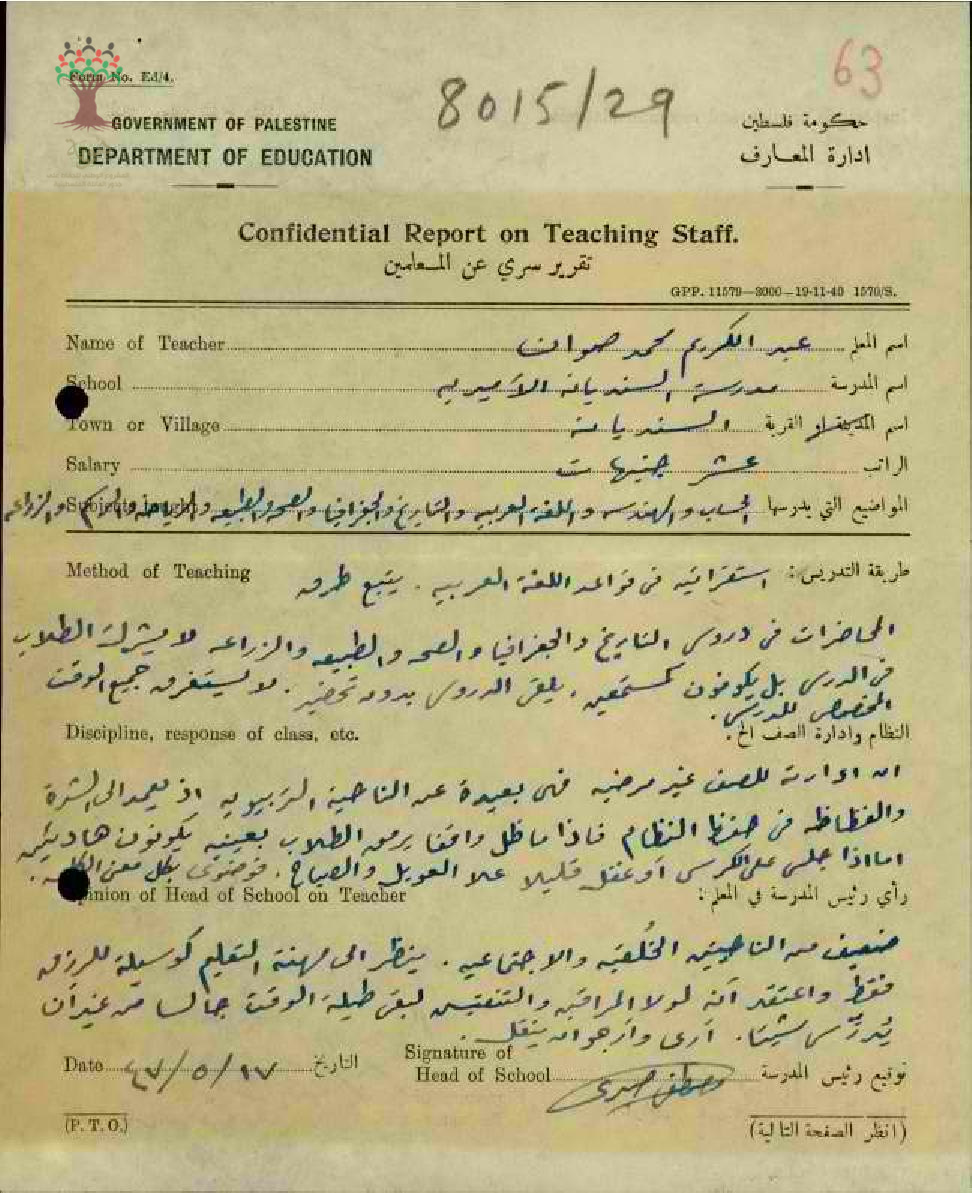 63
8015/29
Form No. Ed/4.
GOVERNMENT OF PALESTINE
حكومة فلسطين
DEPARTMENT OF EDUCATION
ادارة المعارف
Confidential Report on Teaching Staff.
تقرير سري عن المعلمين
GPP. 11579—3000—19-11-40 1570/S.
Name of Teacher عبد الكريم محمد صوان اسم المعلم
School مدرسة السنديانة الأميرية اسم المدرسة
Town or Village السنديانة اسم المدينة او القرية
Salary عشر جنيهات الراتب
المواضيع التي يدرسها الحساب والهندسه واللغة العربيه والتاريخ والجغرافيا والصحه والطبيعه والرياضه والرسم والزراعه
Method of Teaching طريقة التدريس: استقرائيه في قواعد اللغة العربيه. يتبع طرق
المحاضرات في دروس التاريخ والجغرافيا والصحه والطبيعه والزراعه لا يشرك الطلاب
في الدرس بل يكونون كمستمعين. يلقي الدروس بدون تحضير. لا يستغرق جميع الوقت
المخصص للدرس.
Discipline, response of class, etc. النظام وادارة الصف الخ:
ان ادارته للصف غير مرضيه فهي بعيدة عن الناحية التربيويه اذ يعمد الى الشدة
والفظاظه في حفظ النظام فاذا ما ظل واقفا يرمق الطلاب بعينيه يكونون هادئين
اما اذا جلس على الكرسي أو غفل قليلا علا العويل والصياح. فوضوي بكل معنى الكلمه.
Opinion of Head of School on Teacher رأي رئيس المدرسة في المعلم:
ضعيف من الناحيتين الخُلقيه والاجتماعيه. ينظر الى مهنة التعليم كوسيلة للرزق
فقط واعتقد أنه لولا المراقبه والتفتيش لبقي طيلة الوقت جالسا من غير أن
يُدرّس شيئا. أرى وأرجو ان ينقل.
Date ١٧/٥/٤٧ التاريخ
Signature of
Head of School توقيع رئيس المدرسة
(P. T. O.) (انظر الصفحة التالية)